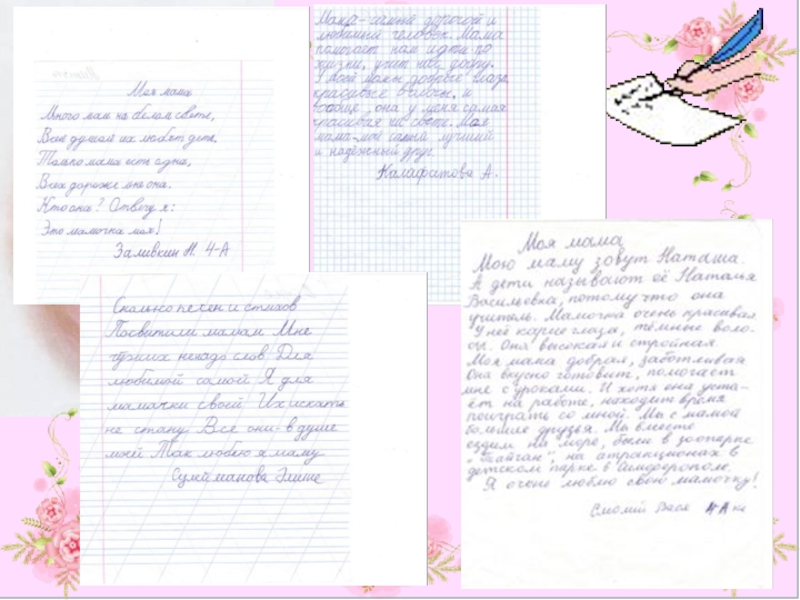 Моя мама
Много мам на белом свете,
Всей душой их любят дети.
Только мама есть одна,
Всех дороже мне она.
Кто она? Отвечу я:
Это мамочка моя!
Заливкин Н. 4-А
Мама - самый дорогой и
любимый человек. Мама
помогает нам идти по
жизни, учит нас добру.
У моей мамы добрые глаза,
красивые волосы, и
вообще, она у меня самая
красивая на свете. Моя
мама-мой самый лучший
и надёжный друг.
Калафатова А.
Сколько песен и стихов
Посвятили мамам Мне
чужих ненадо слов Для
любимой самой Я для
мамочки своей Их искать
не стану Все они-в душе
моей Так люблю я маму
Сулейманова Элине
Моя мама
Мою маму зовут Наташа.
А дети называют её Наталья
Васильевка, потому что она
учитель. Мамочка очень красивая
У неё карие глаза, тёмные воло-
сы. Она высокая и стройная.
Моя мама добрая, заботливая
Она вкусно готовит, помогает
мне с уроками. И хотя она уста-
ёт на работе, находит время
поиграть со мной. Мы с мамой
большие друзья. Мы вместе
ездим на море, были в зоопарке
"Тайган", на атракционах в
детском парке в Симферополе.
Я очень люблю свою мамочку!
Вася 4А кл